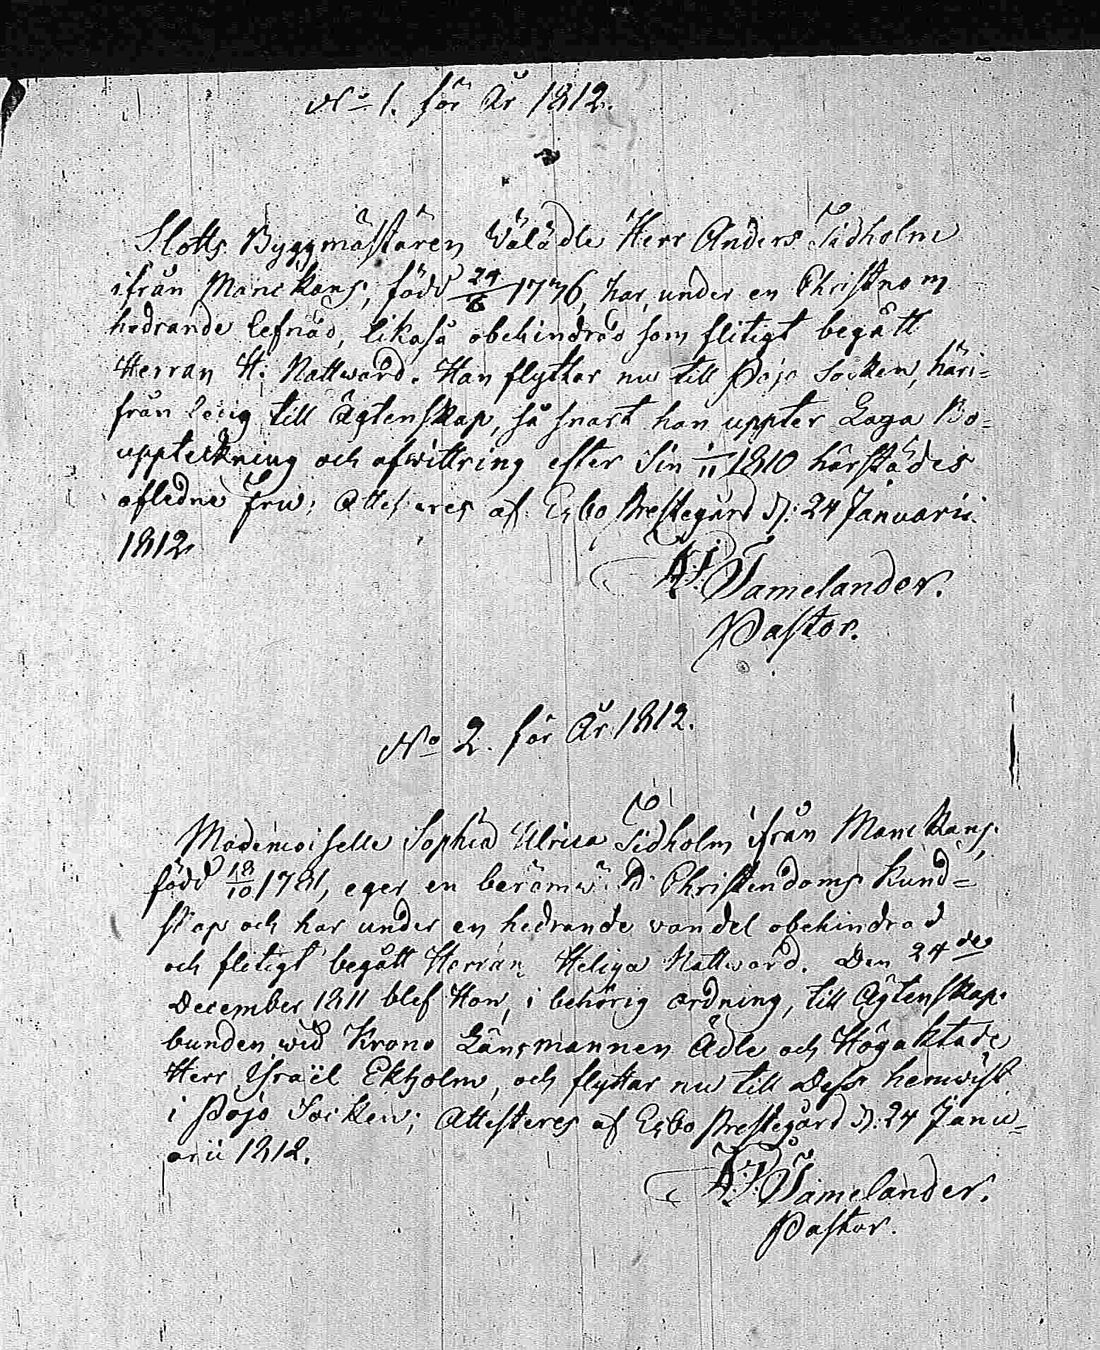 No 1. för År 1812.
Slotts Byggmästaren Välädle Herr Anders Tidholm
ifrån Manckans, född 24/6 1736, har, under en Christnom
hedrande lefnad, likaså obehindrad som flitigt begått
Herran H: Nattward. Han flyttar nu till Pojo Socken, häri-
från ledig till Ägtenskap, så snart han uppter Laga Bo-
uppteckning och afwittring efter Sin 1/11 1810 härstädes
afledne Fru; Attesteres af Esbo Prestegård d: 24 Januarii
1812.
Tamelander.
Pastor.
No 2. för År 1812.
Mademoiselle Sophia Ulrica Tidholm ifrån Manckans,
född 18/10 1781, eger en berömwärd Christendoms Kund-
skap och har under en hedrande vandel obehindrad
och flitigt begått Herran Heliga Nattward. Den 24de
December 1811 blef Hon, i behörig ordning, till Ägtenskap
bunden wid Krono Länsmannen Ädle och Högaktade
Herr Israël Ekholm, och flyttar nu till Dess hemwist
i Pojo Socken; Attesteres af Esbo Prestegård d: 24 Janu-
arii 1812.
Tamelander.
Pastor.